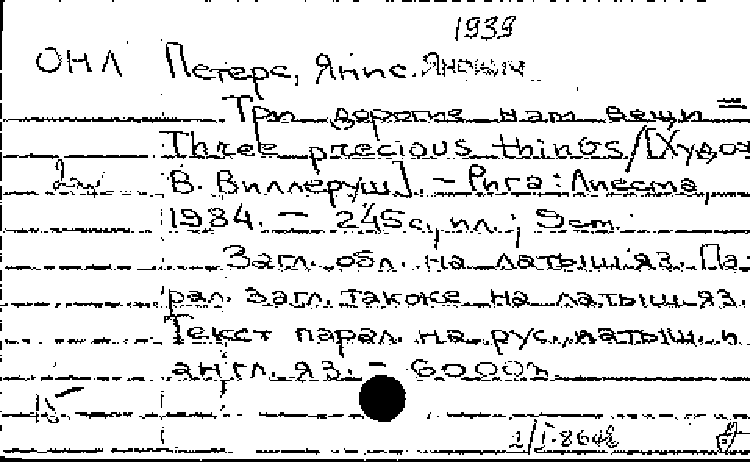 1939
ОНЛ Петерс, Янис Янович
Три дорогие нам вещи =
Three precious things / [Худож.
2эк В. Виллеруш]. - Рига: Лиесма,
1984. - 245 с., ил.; 9 см.
Загл. обл. на латыш. яз. Па-
рал. загл. также на латыш. яз.
Текст парал. на рус., латыш. и
англ. яз. - 6000э.
15-